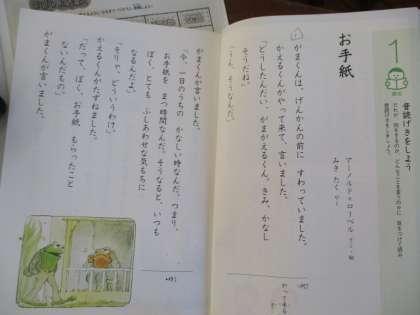 1
音読げきをしよう
だれが、何をするのか、どんなことを言うのかに 気をつけて読み、
音読げきをしましょう。
お手紙
アーノルド=ローベル 作・絵
みき たく やく
がまくんは、げんかんの前に すわっていました。
かえるくんがやって来て、言いました。
「どうしたんだい、がまがえるくん。きみ、かなし
そうだね。」
「うん、そうなんだ。」
がまくんが言いました。
「今、一日のうちの かなしい時なんだ。つまり、
お手紙を まつ時間なんだ。そうなると、いつも
ぼく、とても ふしあわせな気もちに
なるんだよ。」
「そりゃ、どういうわけ。」
かえるくんがたずねました。
「だって、ぼく、お手紙 もらったこと
ないんだもの。」
がまくんが言いました。